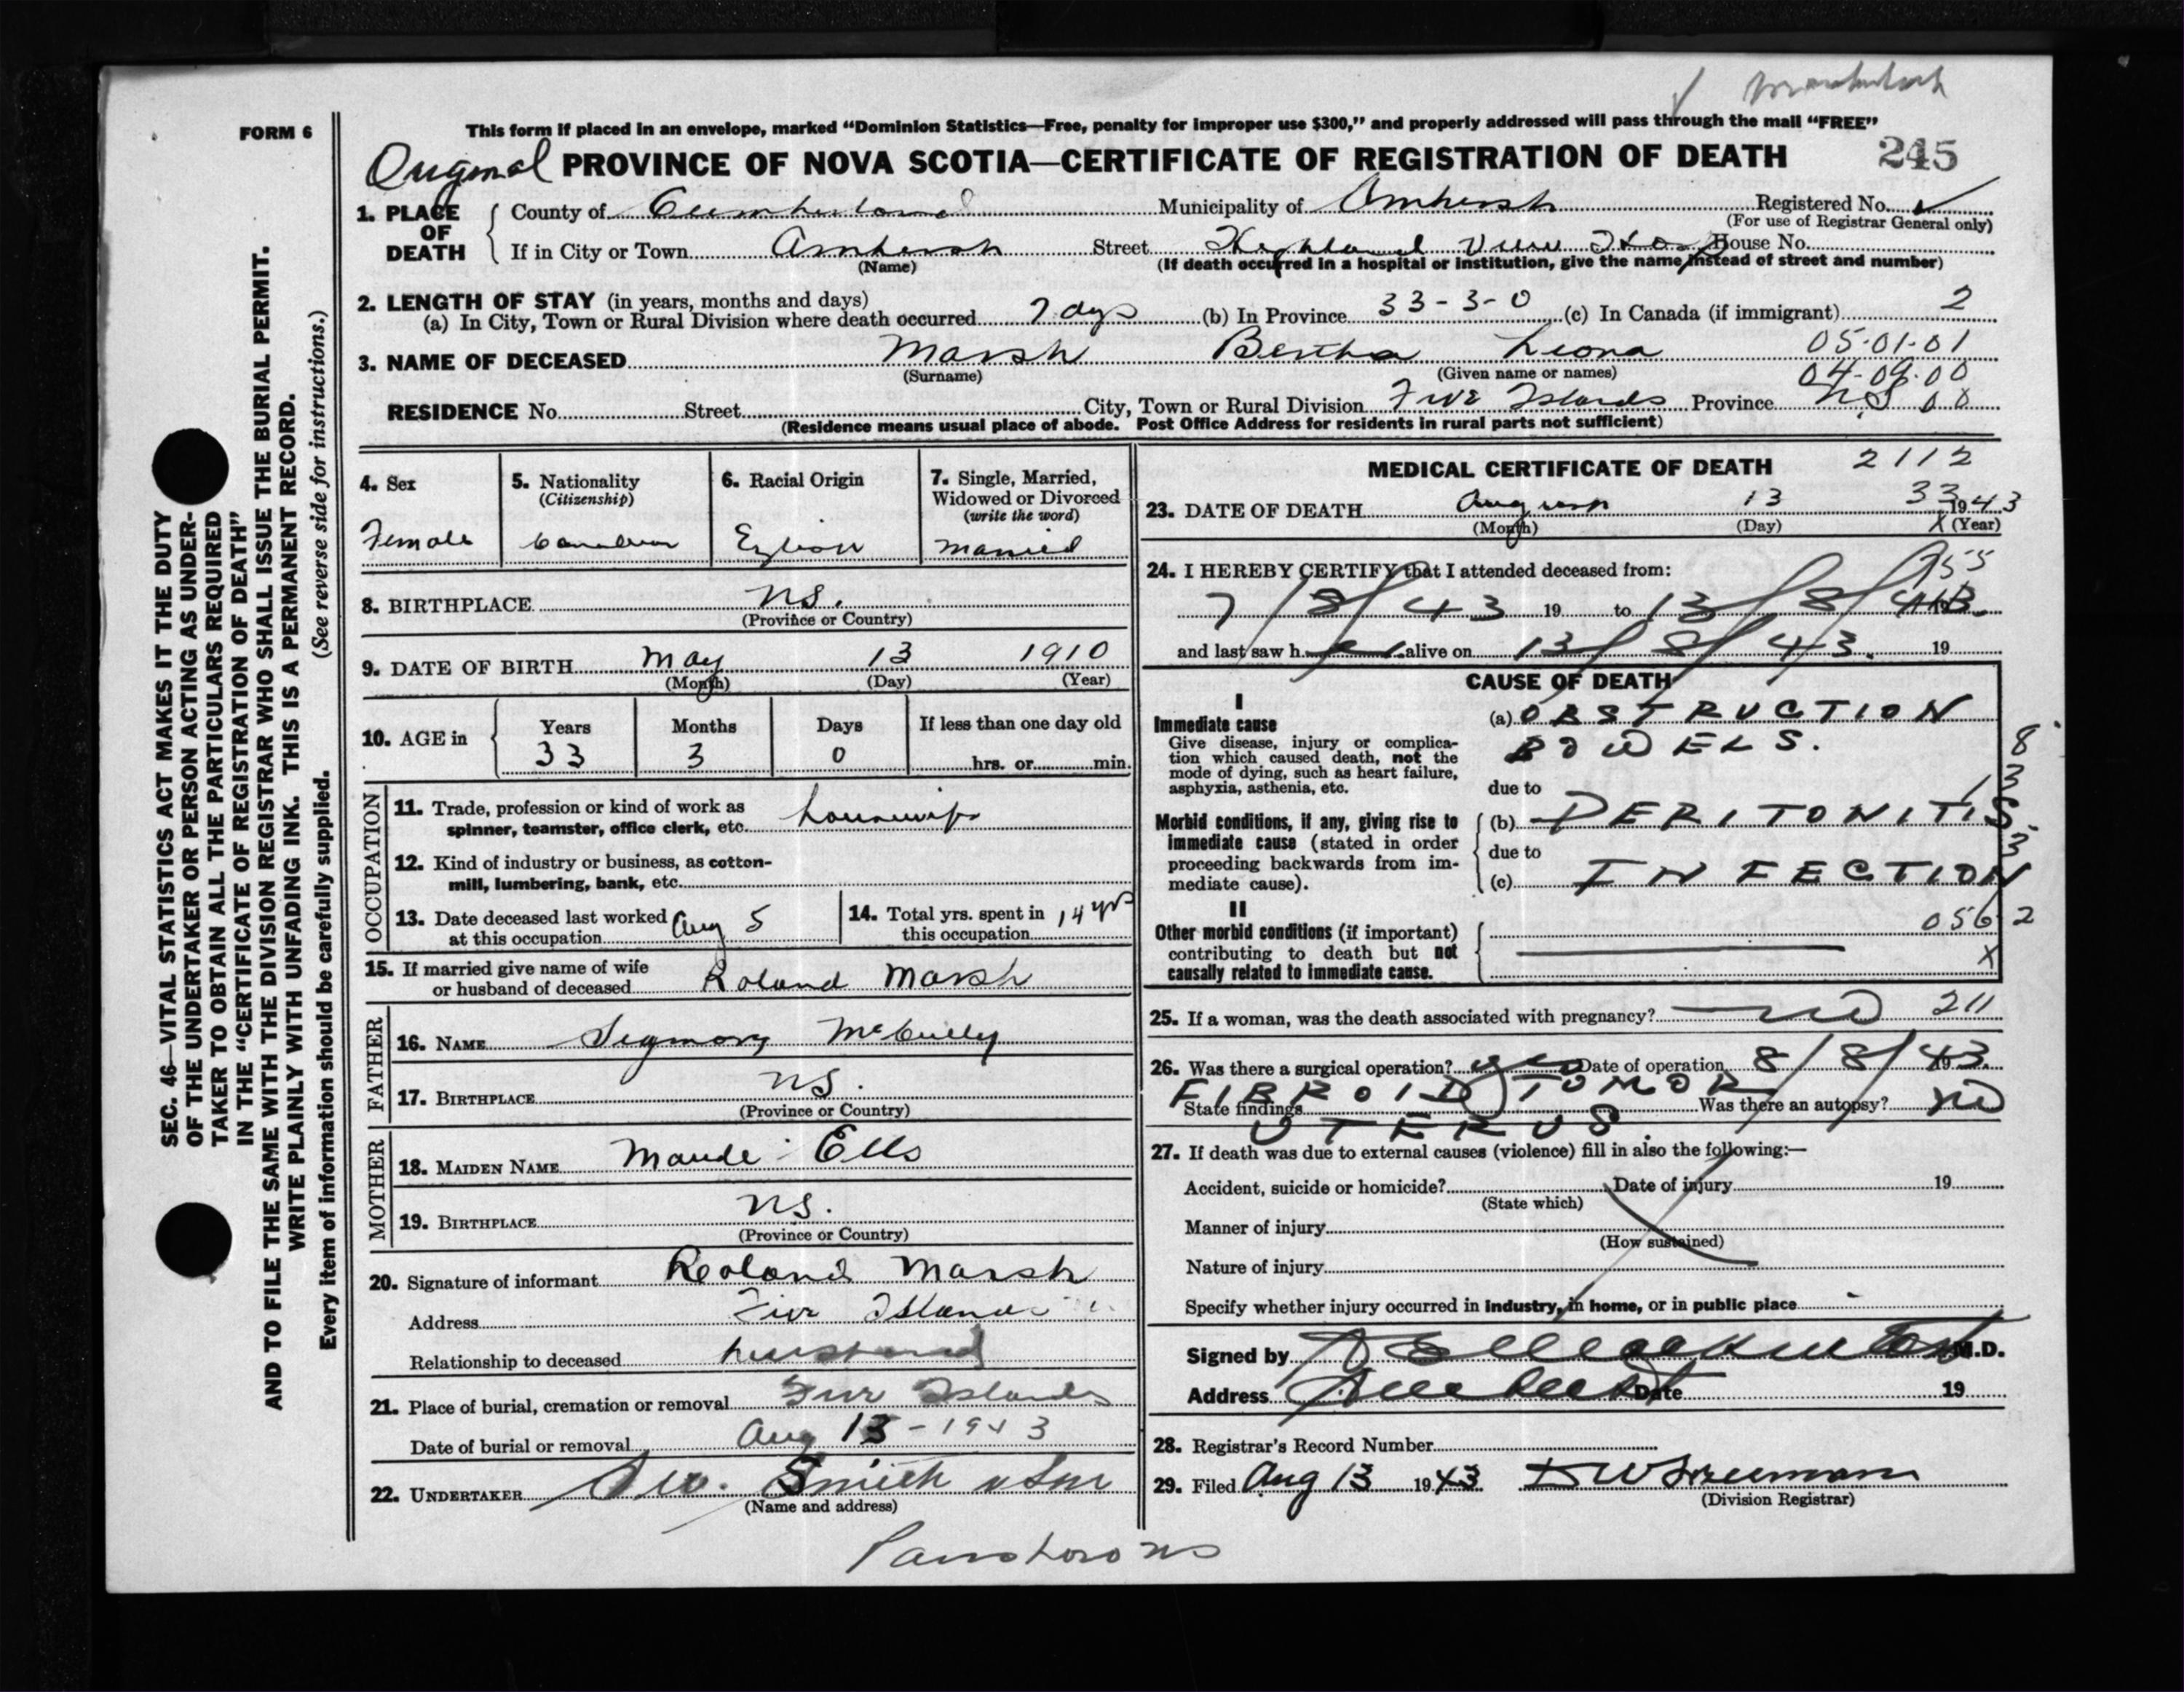 FORM 6
This form if placed in an envelope, marked “Dominion Statistics—Free, penalty for improper use $300,” and properly addressed will pass through the mail “FREE”
Original PROVINCE OF NOVA SCOTIA—CERTIFICATE OF REGISTRATION OF DEATH 245
SEC. 46—VITAL STATISTICS ACT MAKES IT THE DUTY
OF THE UNDERTAKER OR PERSON ACTING AS UNDER-
TAKER TO OBTAIN ALL THE PARTICULARS REQUIRED
IN THE “CERTIFICATE OF REGISTRATION OF DEATH”
AND TO FILE THE SAME WITH THE DIVISION REGISTRAR WHO SHALL ISSUE THE BURIAL PERMIT.
WRITE PLAINLY WITH UNFADING INK. THIS IS A PERMANENT RECORD.
Every item of information should be carefully supplied. (See reverse side for instructions.)
1. PLACE OF DEATH
County of Cumberland Municipality of Amherst Registered No.
(For use of Registrar General only)
If in City or Town Amherst Street Highland View Hosp House No.
(Name) (If death occurred in a hospital or institution, give the name instead of street and number)
2. LENGTH OF STAY (in years, months and days)
(a) In City, Town or Rural Division where death occurred 7 days (b) In Province 33-3-0 (c) In Canada (if immigrant) 2
3. NAME OF DECEASED Marsh Bertha Leona 05-01-01
(Surname) (Given name or names) 04-09-00
RESIDENCE No. Street City, Town or Rural Division Five Islands Province N.S 00
(Residence means usual place of abode. Post Office Address for residents in rural parts not sufficient)
4. Sex
Female
5. Nationality
(Citizenship)
Canadian
6. Racial Origin
English
7. Single, Married,
Widowed or Divorced
(write the word)
Married
8. BIRTHPLACE NS.
(Province or Country)
9. DATE OF BIRTH May 13 1910
(Month) (Day) (Year)
10. AGE in
Years Months Days If less than one day old
33 3 0 hrs. or min.
OCCUPATION
11. Trade, profession or kind of work as
spinner, teamster, office clerk, etc. housewife
12. Kind of industry or business, as cotton-
mill, lumbering, bank, etc.
13. Date deceased last worked
at this occupation Aug 5
14. Total yrs. spent in
this occupation 14 yrs
15. If married give name of wife
or husband of deceased Roland Marsh
FATHER
16. NAME McCully
17. BIRTHPLACE NS.
(Province or Country)
MOTHER
18. MAIDEN NAME Maude Ells
19. BIRTHPLACE NS.
(Province or Country)
20. Signature of informant Roland Marsh
Address Five Islands
Relationship to deceased husband
21. Place of burial, cremation or removal Five Islands
Date of burial or removal Aug 15-1943
22. UNDERTAKER Smith & Son
(Name and address)
Parrsboro NS
MEDICAL CERTIFICATE OF DEATH 2112
23. DATE OF DEATH August 13 33 1943
(Month) (Day) X (Year)
24. I HEREBY CERTIFY that I attended deceased from: 955
7/8/43 19 to 13/8/43.
and last saw h er alive on 13/8/43. 19
CAUSE OF DEATH
I
Immediate cause
Give disease, injury or complica-
tion which caused death, not the
mode of dying, such as heart failure,
asphyxia, asthenia, etc.
(a) OBSTRUCTION
BOWELS.
due to
Morbid conditions, if any, giving rise to
immediate cause (stated in order
proceeding backwards from im-
mediate cause).
(b) PERITONITIS.
due to
(c) INFECTION
8
3
3
II
Other morbid conditions (if important)
contributing to death but not
causally related to immediate cause.
056 2
X
25. If a woman, was the death associated with pregnancy? no 211
26. Was there a surgical operation? yes Date of operation 8/8/43.
FIBROID TUMOR
State findings Was there an autopsy? NO
UTERUS.
27. If death was due to external causes (violence) fill in also the following:—
Accident, suicide or homicide? Date of injury 19
(State which)
Manner of injury
(How sustained)
Nature of injury
Specify whether injury occurred in industry, in home, or in public place
Signed by M.D.
Address Amherst Date 19
28. Registrar’s Record Number
29. Filed Aug 13 1943
(Division Registrar)